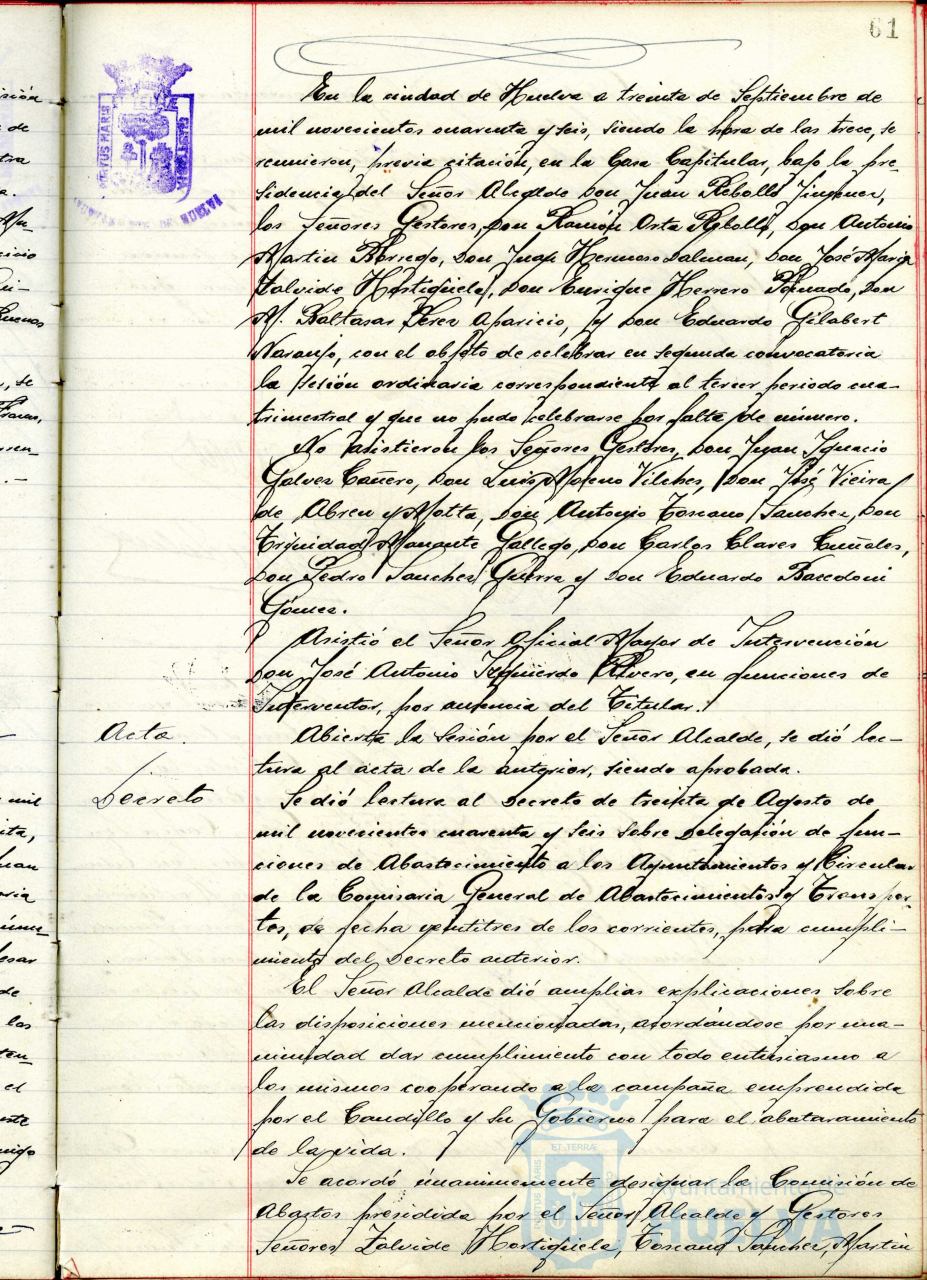 61
En la ciudad de Huelva a treinta de Septiembre de
mil novecientos cuarenta y seis, siendo la hora de las trece, se
reunieron, previa citación, en la Casa Capitular, bajo la pre-
sidencia del Señor Alcalde Don Juan Rebollo Jimenez,
los Señores Gestores, Don Ramón Orta Rebollo, Don Antonio
Martin Borrego, Don Juan Hermoso Dalman, Don José Maria
Zalvide Hostigüela, Don Enrique Herrero Pintado, Don
M. Baltasar Perez Aparicio, y Don Eduardo Gilabert
Naranjo, con el objeto de celebrar en segunda convocatoria
la sesión ordinaria correspondiente al tercer periodo cua-
trimestral y que no pudo celebrarse por falta de número.
No asistieron los Señores Gestores, Don Juan Ignacio
Galvez Cañero, Don Luis Moreno Vilches, Don José Vieira
de Abreu y Motta, Don Antonio Toscano Sanchez, Don
Trinidad Manante Gallego, Don Carlos Clares Cuñales,
Don Pedro Sanchez Guerra y Don Eduardo Bacedoni
Gómez.
Asistió el Señor Oficial Mayor de Intervención
Don José Antonio Izquierdo Rivero, en funciones de
Interventor, por ausencia del Titular.
Acta.
Abierta la Sesión por el Señor Alcalde, se dió lec-
tura al acta de la anterior, siendo aprobada.
Decreto
Se dió lectura al Decreto de treinta de Agosto de
mil novecientos cuarenta y seis sobre delegación de fun-
ciones de Abastecimiento a los Ayuntamientos y Circular
de la Comisaria General de Abastecimientos y Transpor-
tes, de fecha ventitres de los corrientes, para cumpli-
miento del Decreto anterior.
El Señor Alcalde dió amplias explicaciones sobre
las disposiciones mencionadas, acordándose por una-
nimidad dar cumplimiento con todo entusiasmo a
los mismos cooperando a la campaña emprendida
por el Caudillo y su Gobierno para el abataramiento
de la vida.
Se acordó únanimemente designar la Comisión de
Abastos presidida por el Señor Alcalde y Gestores
Señores Zalvide Hostigüela, Toscano Sanchez, Martin
Ayuntamiento de
HUELVA